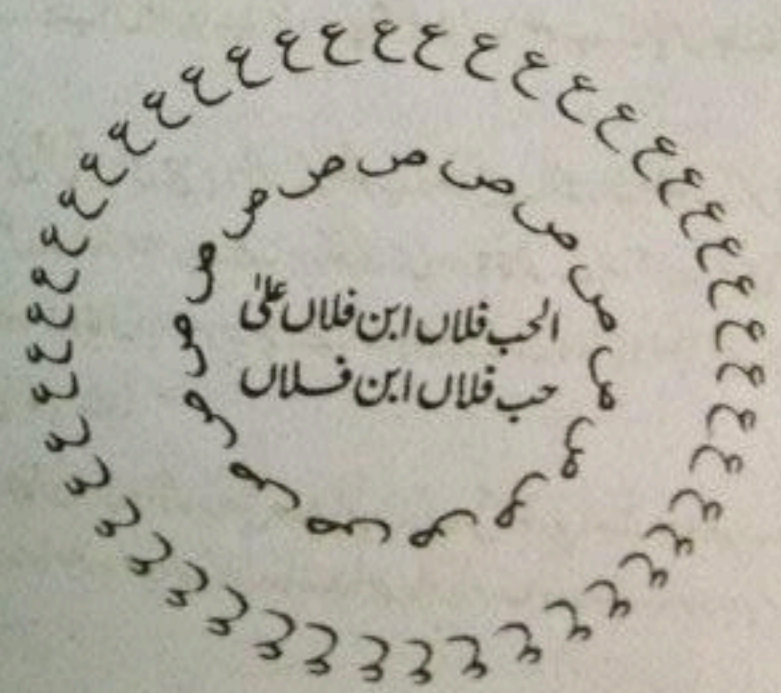 ع ع ع ع ع ع ع ع ع ع ع ع ع ع ع ع ع ع ع ع ع ع ع ع ع ع ع ع ع ع ع ع ع ع ع ع ع ع ع ع ع ع ع ع ع
ص ص ص ص ص ص ص ص ص ص ص ص ص ص ص
الحب فلاں ابن فلاں علیٰ
حب فلاں ابن فلاں